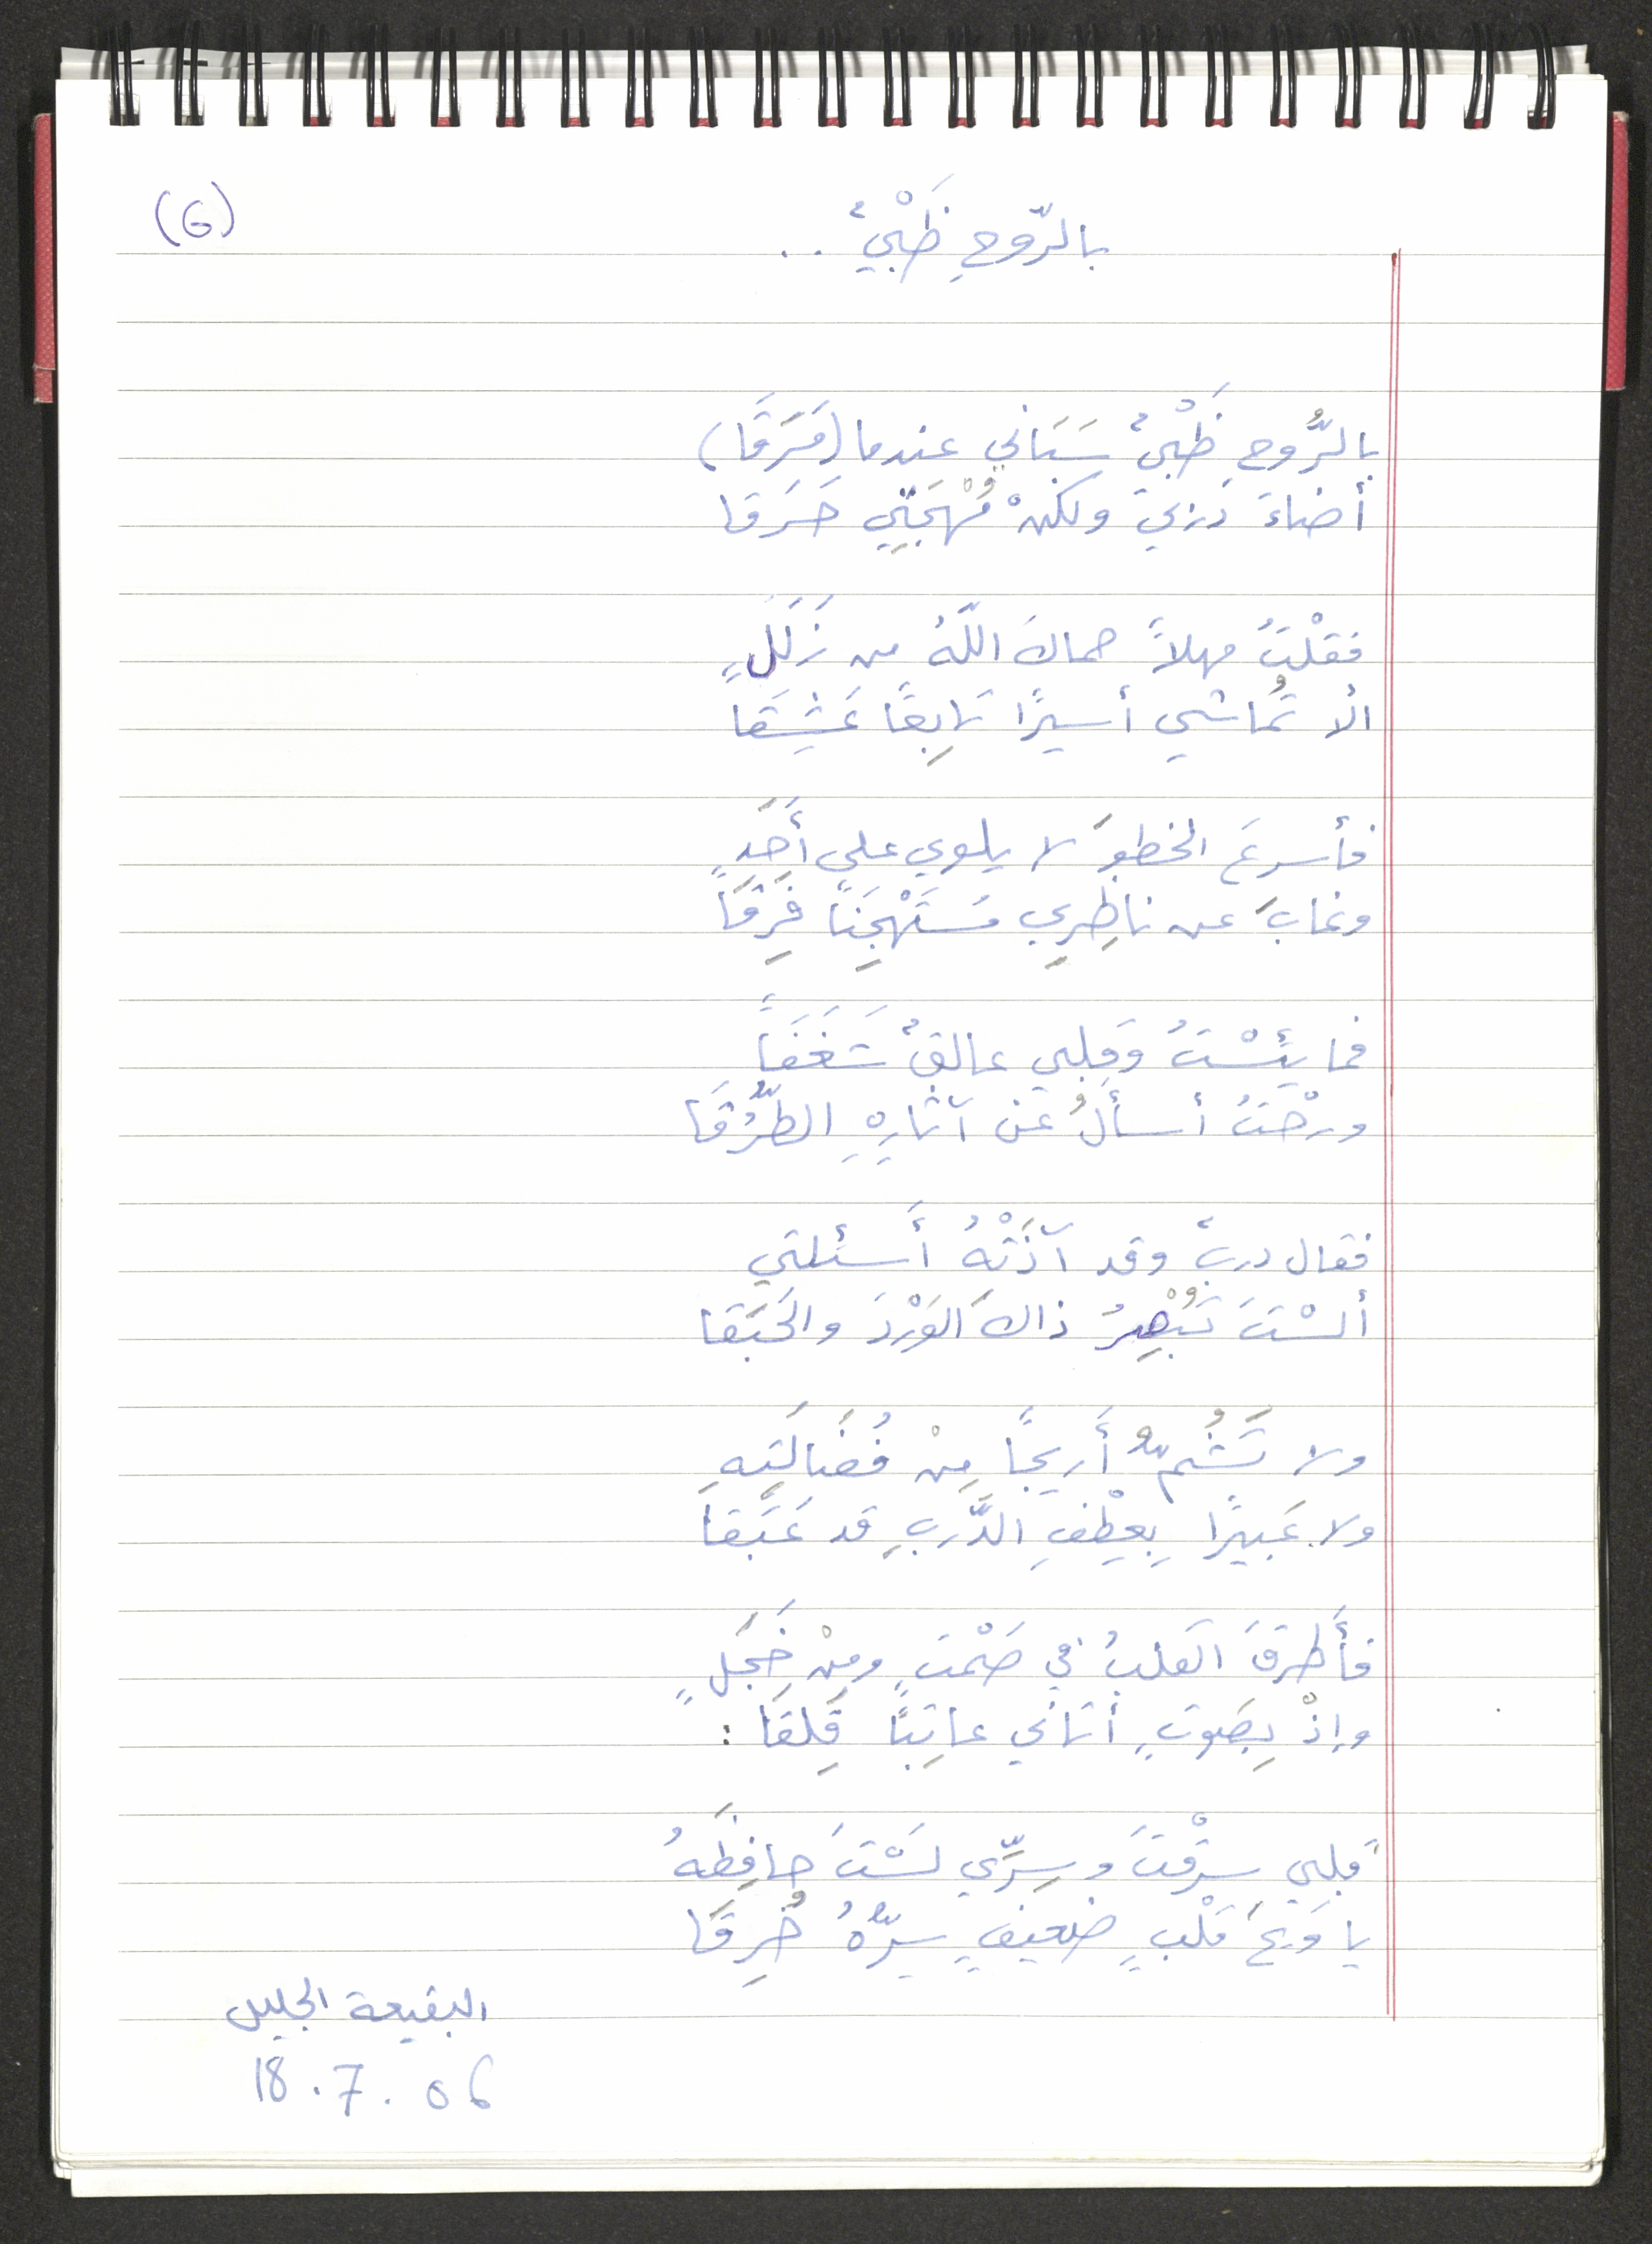 (6)
بالرّوحِ ظَبْيٌ ..
بالرُّوحِ ظَبْيٌ سَبَاني عندما (مَرَقَا)
أضاءَ دَربيَ ولكنْ مُهْجَتِي حَرَقا
فقلْتُ مهلاً حماكَ اللّهُ من زَلَلٍ
ألا تُماشي أسيرًا تَابِعًا عَشِقَا
فأسرعَ الخطوَ لا يلوي على أَحَدٍ
وغابَ عن ناظِرِي مُسْتَهْجِنًا فَرِقَا
فما يَئِسْتُ وَقلبي عالقٌ شَغَفَاً
ورُحْتُ أسألُ عَن آثارِهِ الطُّرُقَا
فقال دربٌ وقد آذَتْهُ أَسئلتي
ألسْتَ تُبْصِرُ ذاكَ الوَرْدَ والحَبَقا
ولا تَشُمُّ أَرِيجًا مِنْ فُضَالَتِهِ
ولا عَبيرًا بِعِطْفِ الدَّربِ قد عَبَقا
فأَطرَقَ القلبُ في صَمْتٍ ومِنْ خَجَلٍ
وإذْ بِصَوتٍ أتاني عاتِبًا قَلِقَا :
"قلبي سرقْتَ وسِرِّي لسْتَ حافِظَهُ
يا وَيحَ قَلْبٍ ضعيفٍ سِرُّهُ خُرِقَا
البقيعة الجليل
18.7.06